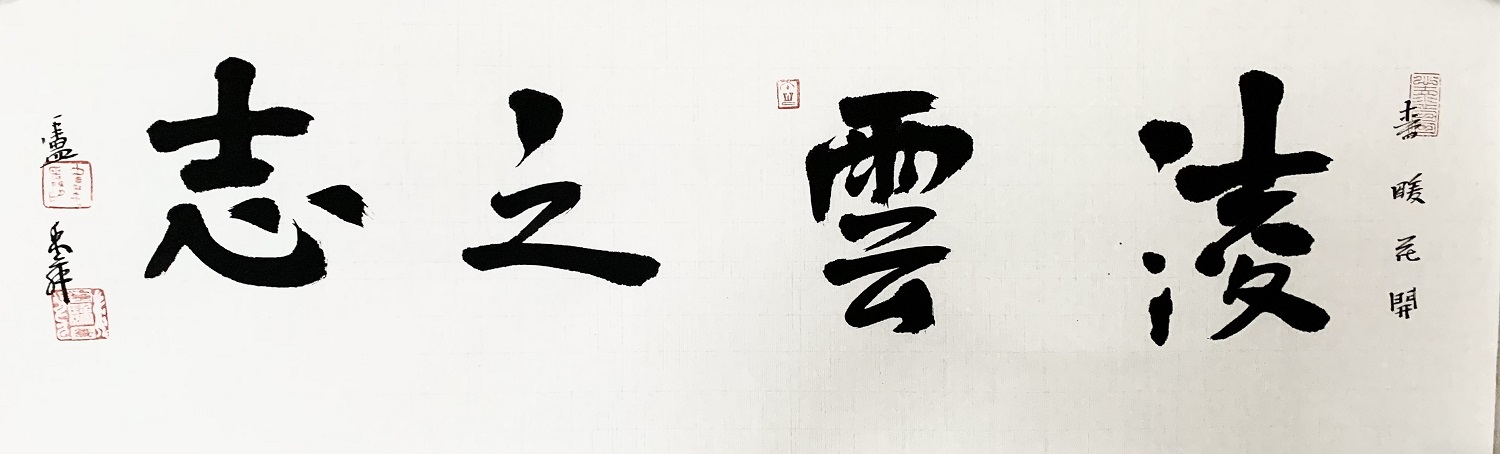 春暖花開
凌雲之志
盧